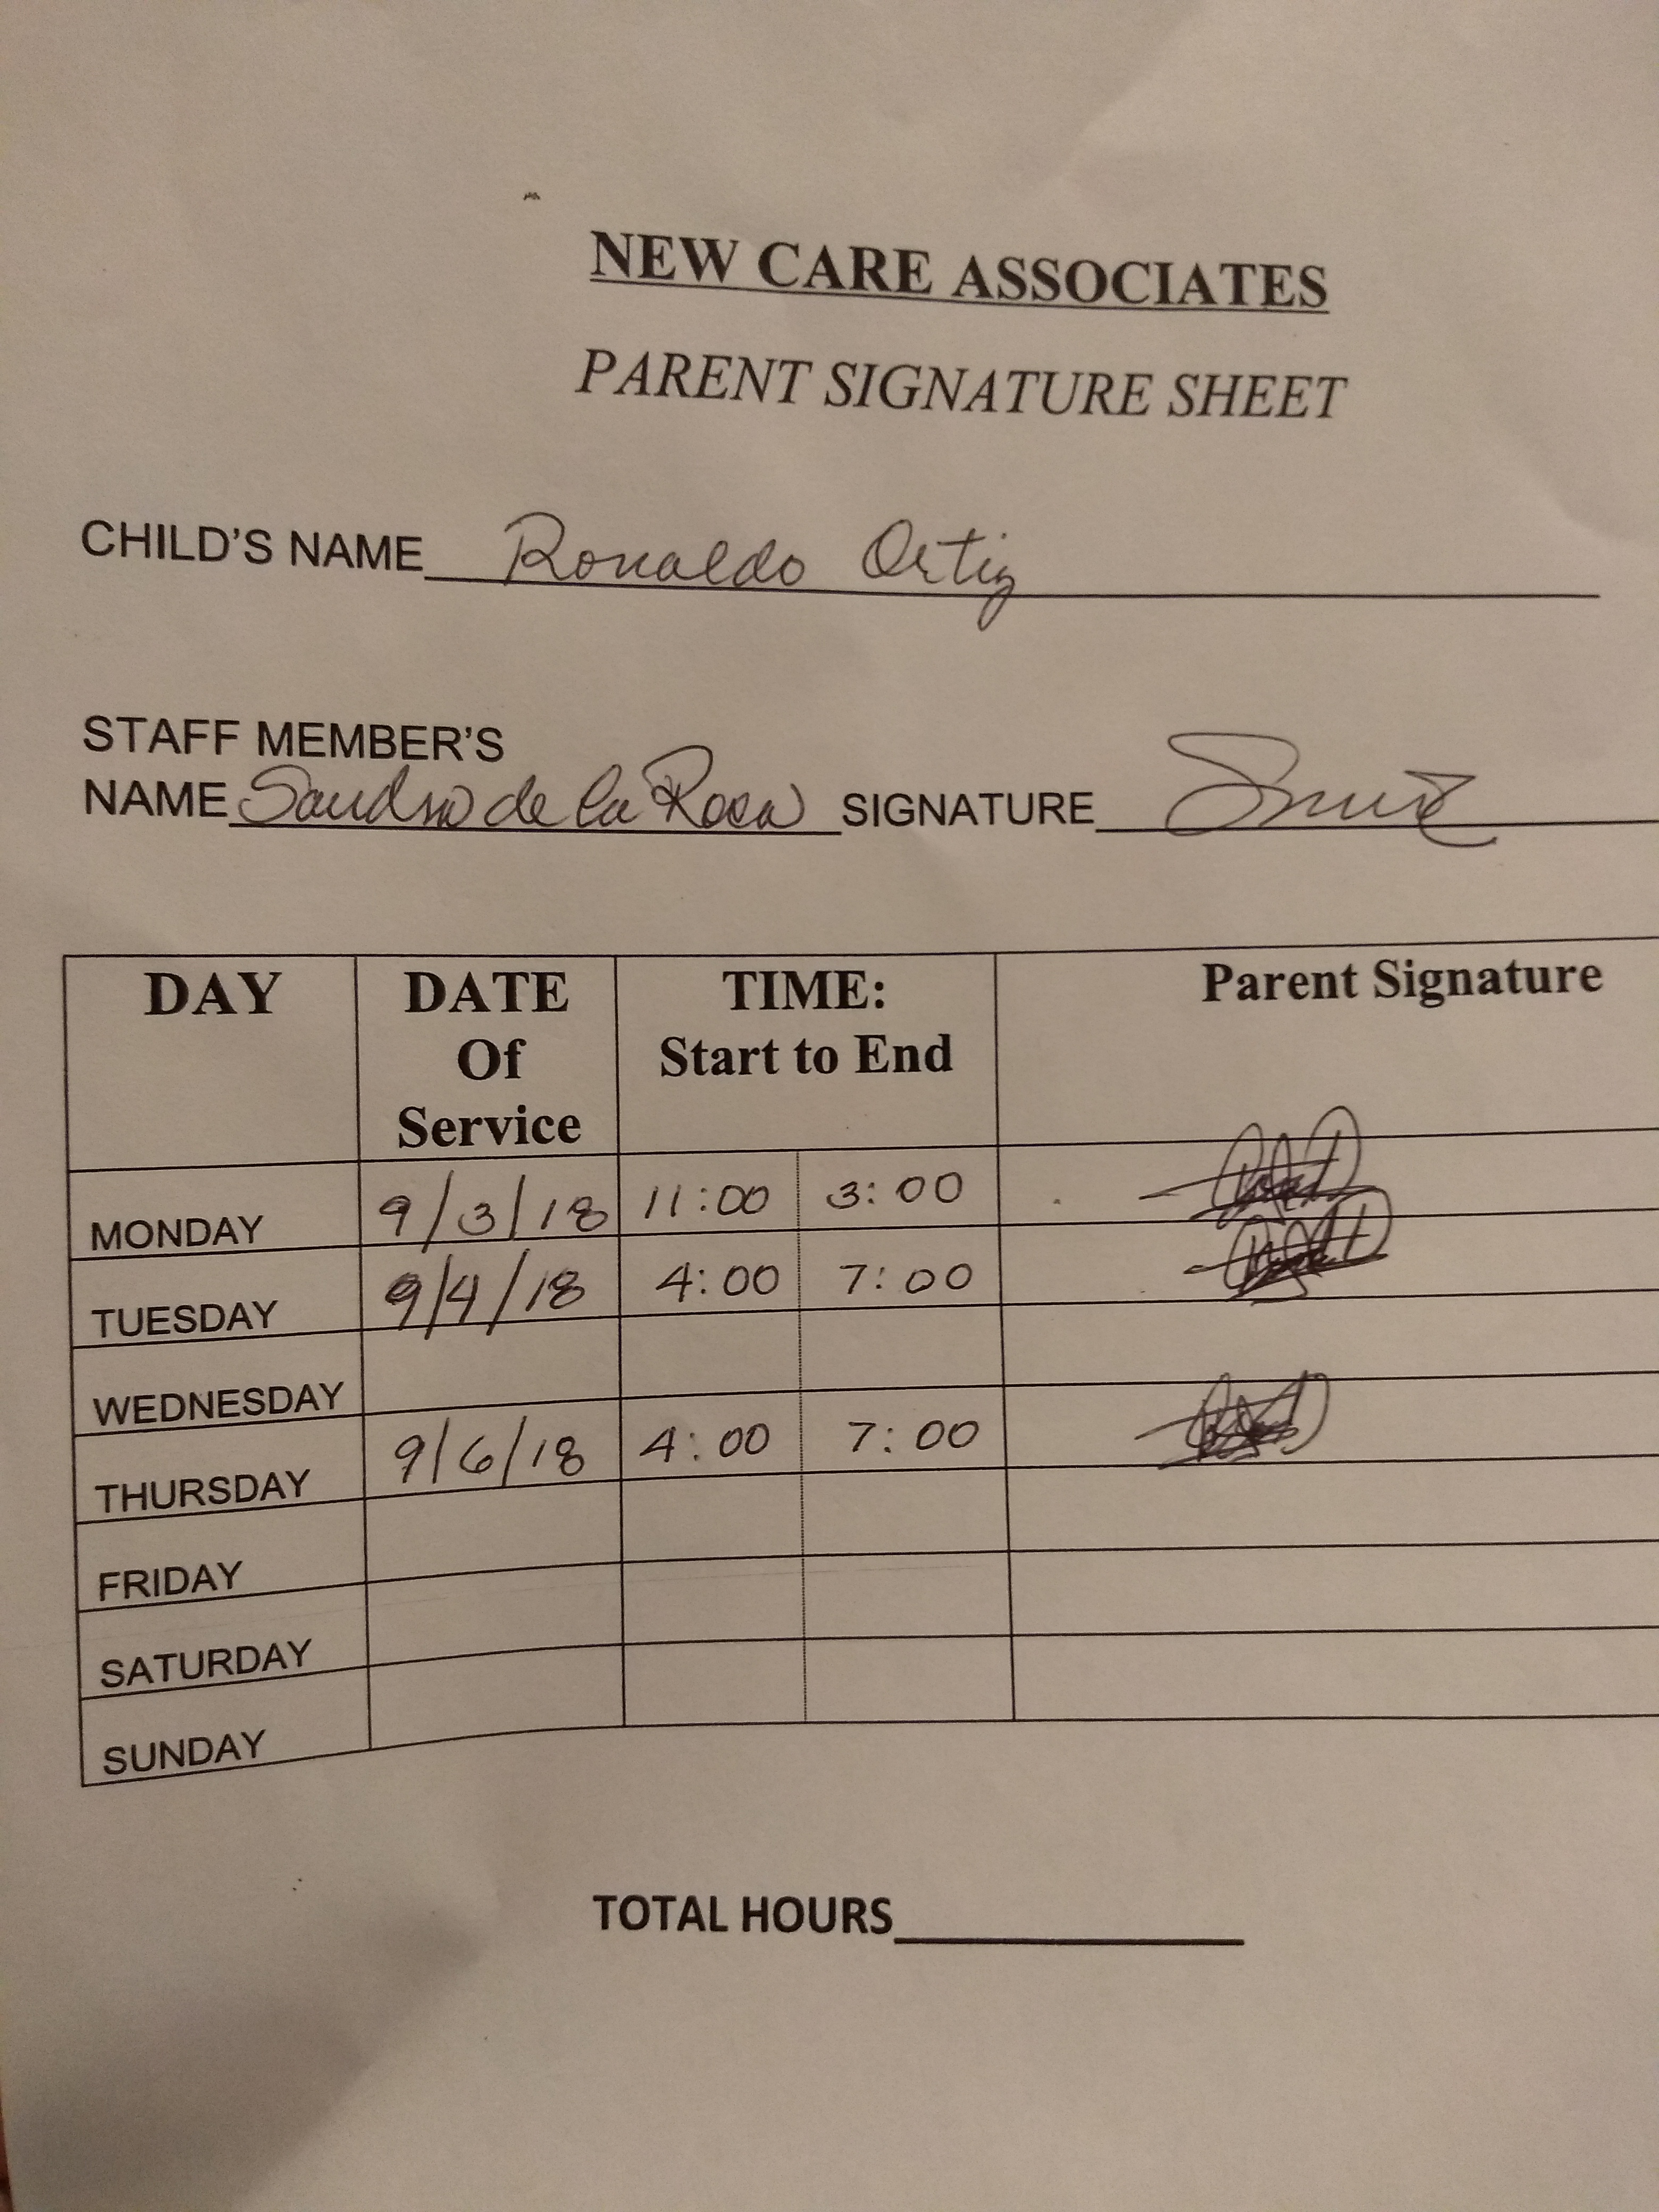 NEW CARE ASSOCIATES
PARENT SIGNATURE SHEET
CHILD'S NAME Ronaldo Ortiz
STAFF MEMBER'S
NAME Sandra de la Rosa SIGNATURE
DAY DATE Of Service TIME: Start to End Parent Signature
MONDAY 9/3/18 11:00 3:00
TUESDAY 9/4/18 4:00 7:00
WEDNESDAY
THURSDAY 9/6/18 4:00 7:00
FRIDAY
SATURDAY
SUNDAY
TOTAL HOURS